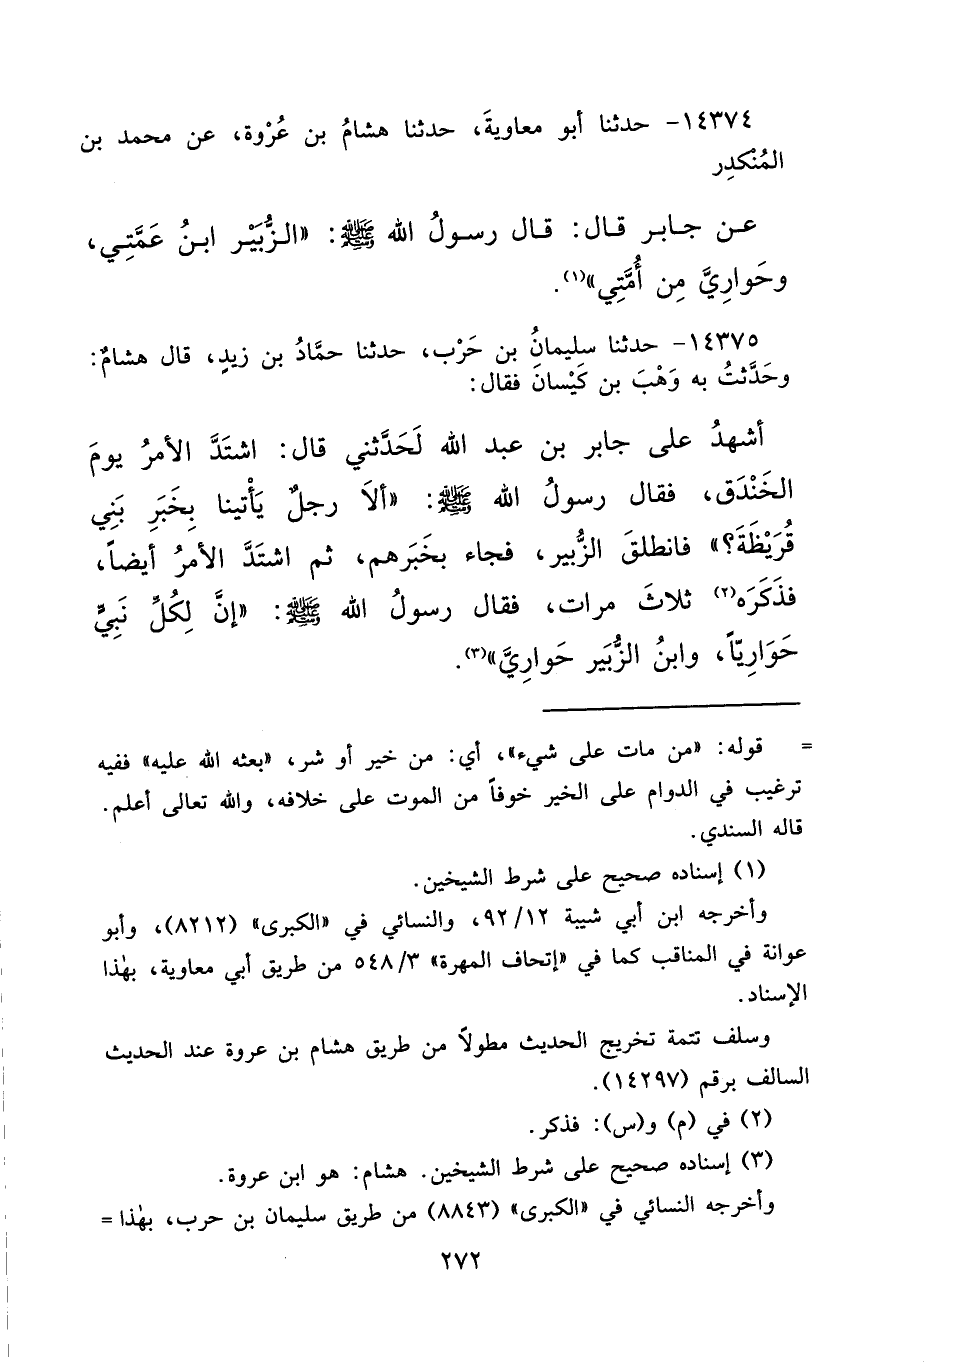 ١٤٣٧٤- حدثنا أبو معاويةَ، حدثنا هشامُ بن عُرْوة، عن محمد بن
المُنْكدِر
عـن جـابـر قـال: قـال رسـولُ الله ﷺ: «الـزُّبَيْـر ابـنُ عَمَّتِـي،
وحَوارِيَّ مِن أُمَّتِي»(١).
١٤٣٧٥- حدثنا سليمانُ بن حَرْب، حدثنا حمَّادُ بن زيدٍ، قال هشامٌ:
وحَدَّثتُ به وَهْبَ بن كَيْسانَ فقال:
أشهدُ على جابر بن عبد الله لَحَدَّثني قال: اشتَدَّ الأمرُ يومَ
الخَنْدَق، فقال رسولُ الله ﷺ: «ألاَ رجلٌ يَأْتينا بِخَبَرِ بَنِي
قُرَيْظَةَ؟» فانطلقَ الزُّبير، فجاء بخَبَرهم، ثم اشتَدَّ الأمرُ أيضاً،
فذَكَرَه(٢) ثلاثَ مرات، فقال رسولُ الله ﷺ: «إنَّ لِكُلِّ نَبِيٍّ
حَوَارِيّاً، وابنُ الزُّبَير حَوارِيَّ»(٣).
= قوله: «من مات على شيء»، أي: من خير أو شر، «بعثه الله عليه» ففيه
ترغيب في الدوام على الخير خوفاً من الموت على خلافه، والله تعالى أعلم.
قاله السندي.
(١) إسناده صحيح على شرط الشيخين.
وأخرجه ابن أبي شيبة ٩٢/١٢، والنسائي في «الكبرى» (٨٢١٢)، وأبو
عوانة في المناقب كما في «إتحاف المهرة» ٥٤٨/٣ من طريق أبي معاوية، بهٰذا
الإسناد.
وسلف تتمة تخريج الحديث مطولاً من طريق هشام بن عروة عند الحديث
السالف برقم (١٤٢٩٧).
(٢) في (م) و(س): فذكر.
(٣) إسناده صحيح على شرط الشيخين. هشام: هو ابن عروة.
وأخرجه النسائي في «الكبرى» (٨٨٤٣) من طريق سليمان بن حرب، بهٰذا =
٢٧٢